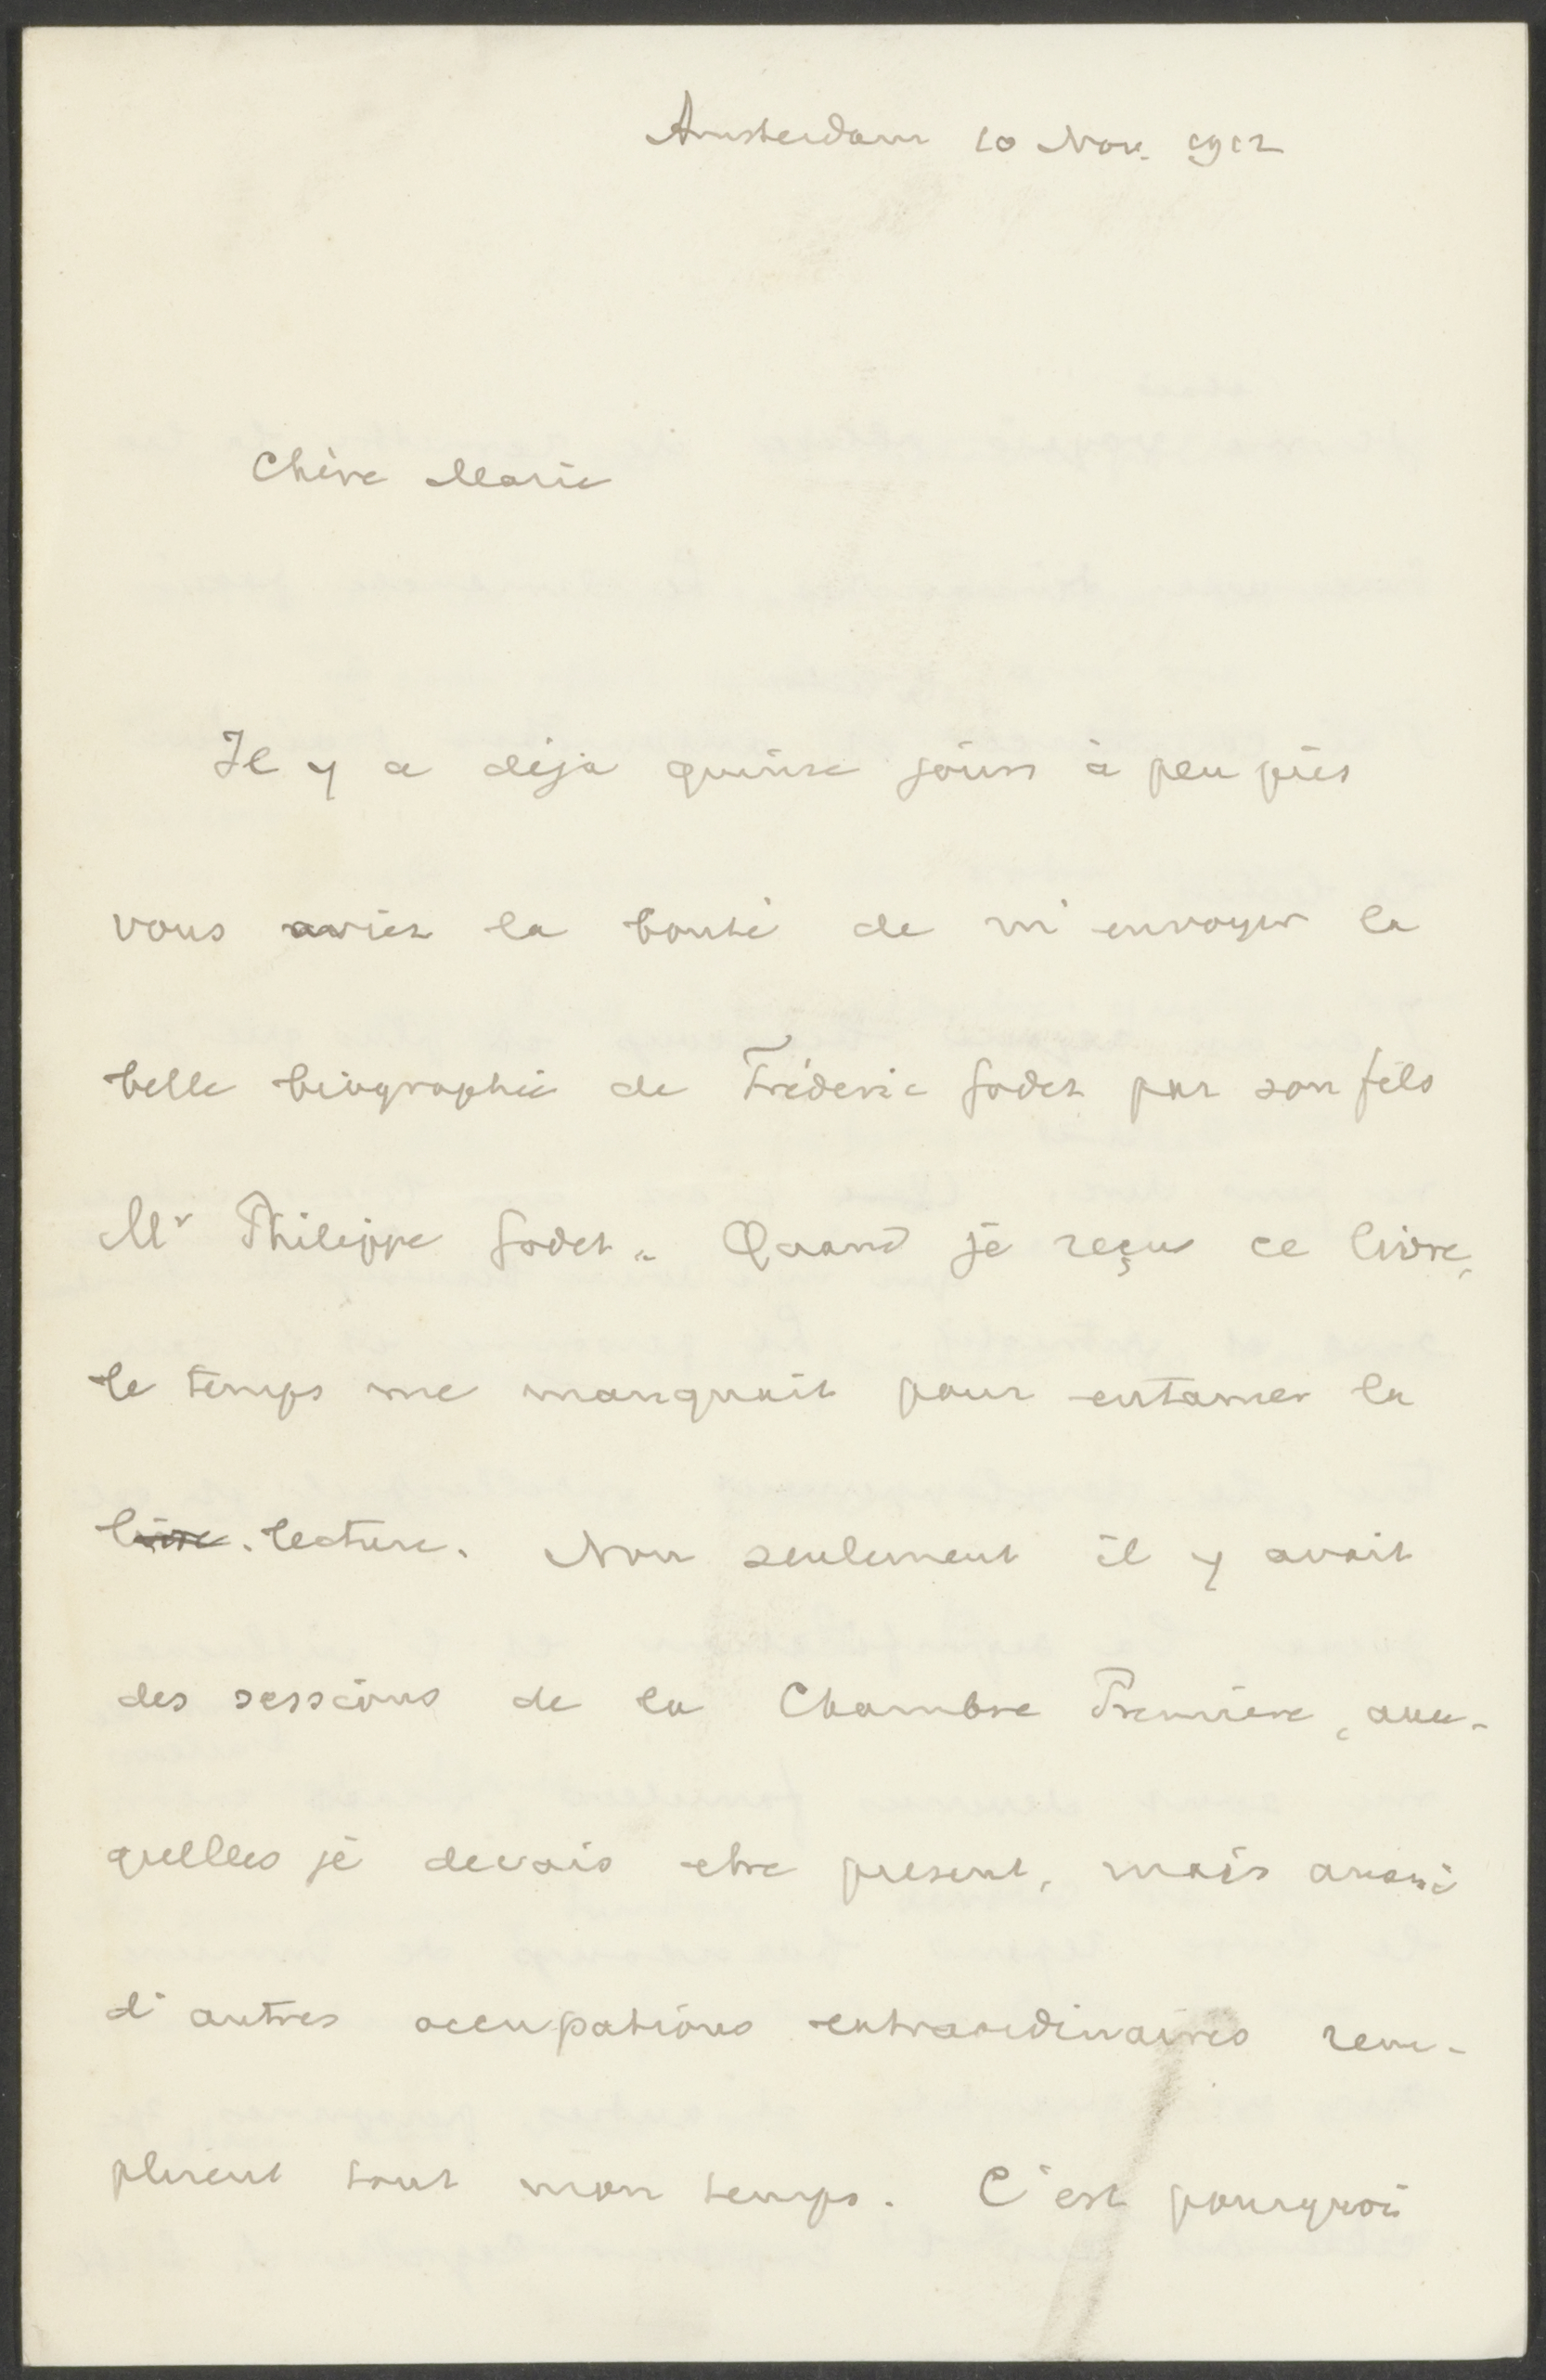 Amsterdam 10 Nov. 1912
Chère Marie
Il y a déja quinze jours à peu près
vous aviez la bonté de m'envoyer la
belle biographie de Fréderic Godet par son fils
Mr Philippe Godet. Quand je reçus ce livre,
le temps me manquait pour entamer la
livre. lecture. Non seulement il y avait
des sessions de la Chambre Première, aux-
quelles je devais etre present, mais aussi
d'autres occupations extraordinaires rem-
plirent tout mon temps. C'est pourquoi